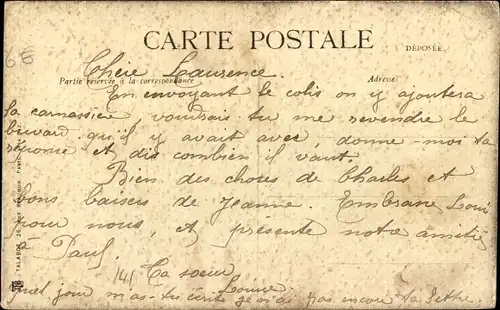 6€
CARTE POSTALE
DÉPOSÉE
Partie réservée à la correspondance
Adresse
Chère Laurence.
En envoyant le colis on y ajoutera
la carnassière, voudrais-tu me revendre le
buvard qu'il y avait avec, donne-moi ta
réponse et dis combien il vaut.
Bien des choses de Charles et
bons baisers de Jeanne. Embrasse Loui
pour nous, et présente notre amitié
à Paul.
Ta soeur
Louise
quel jour m'as-tu écrit je n'ai pas encore ta lettre.